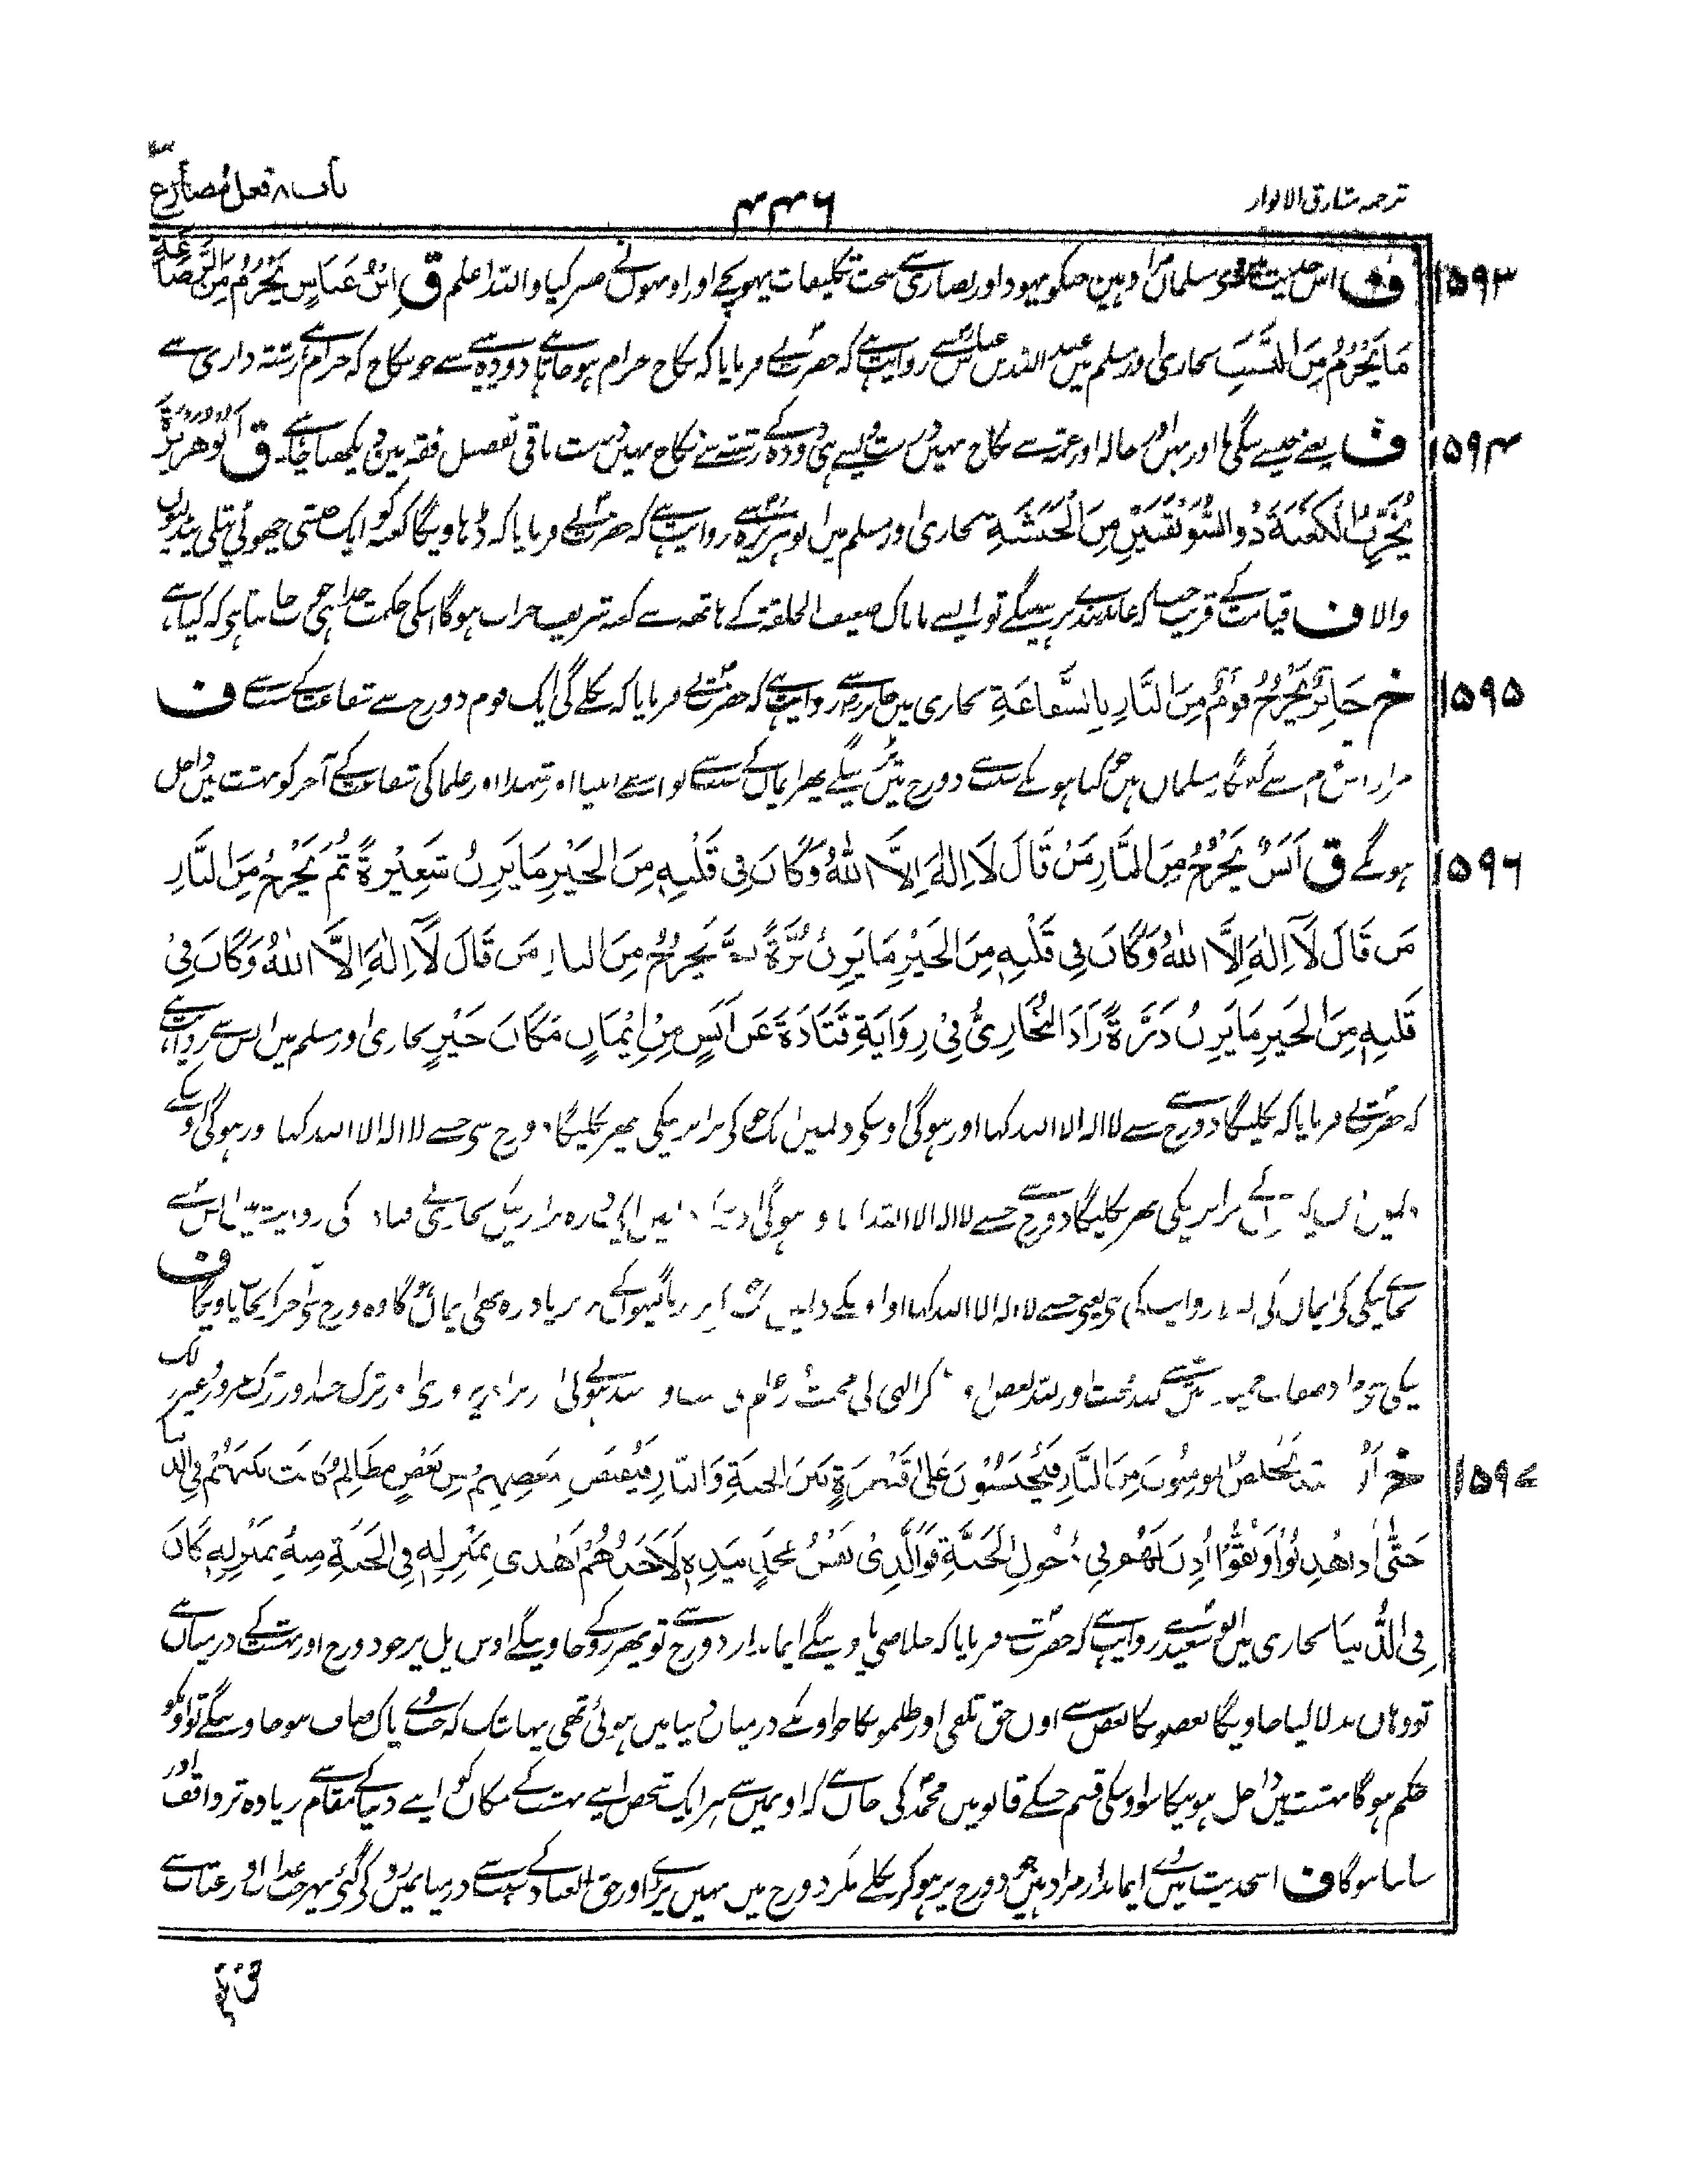 ترجمہ مشارق الانوار
۴۴۶
باب ۸ فعل مضارع
۱۵۹۳ ف اس حدیث سے وہی مسلمان مراد ہین جنکو یہود اور نصاری سے سخت تکلیفات پہونچے اور اونہوں نے صبر کیا واللہ اعلم ق اِبْنُ عَبَّاسٍ يَحْرُمُ مِنَ الرَّضَاعَةِ
مَا يَحْرُمُ مِنَ النَّسَبِ بخاری اور مسلم میں عبد اللہ بن عباس سے روایت ہے کہ حضرت نے فرمایا کہ نکاح حرام ہو جاتا ہے دودہ پینے سے جو نکاح کہ حرام ہے رشتہ داری سے
۱۵۹۴ ف یعنے جیسے سگی ما اور بہن اور خالہ اور عمہ سے نکاح نہیں درست ویسے ہی دودہ کے رشتے سے نکاح نہیں درست باقی تفصیل فقہ مین دیکھا چاہئے ق اَبُوْ هُرَيْرَةَ
يُخَرِّبُ الْكَعْبَةَ ذُو السُّوَيْقَتَيْنِ مِنَ الْحَبَشَةِ بخاری اور مسلم میں ابو ہریرہ سے روایت ہے کہ حضرت نے فرمایا کہ ڈہاویگا کعبہ کو ایک حبشی چھوٹی پتلی پنڈلیوں
والا ف قیامت کے قریب جبکہ عابد بندے نہ رہینگے تو ایسے ناپاک ضعیف الخلقۃ کے ہاتھ سے کعبہ شریف خراب ہوگا اسکی حکمت خدا ہی جانتا ہو کہ کیا ہے
۱۵۹۵ خ جَابِرٌ يَخْرُجُ قَوْمٌ مِنَ النَّارِ بِالشَّفَاعَةِ بخاری میں جابر سے روایت ہے کہ حضرت نے فرمایا کہ نکلے گی ایک قوم دوزخ سے شفاعت کے سبب سے ف
مراد اس قوم سے گنہگار مسلمان ہیں جو گناہونکے سبب سے دوزخ میں پڑینگے پھر ایمان کے سبب سے اور انبیا اور شہدا اور علما کی شفاعت سے آخر کو بہشت میں داخل
۱۵۹۶ ہونگے ق اَنَسٌ يَخْرُجُ مِنَ النَّارِ مَنْ قَالَ لَا اِلٰهَ اِلَّا اللّٰهُ وَكَانَ فِي قَلْبِهٖ مِنَ الْخَيْرِ مَا يَزِنُ شَعِيْرَةً ثُمَّ يَخْرُجُ مِنَ النَّارِ
مَنْ قَالَ لَآ اِلٰهَ اِلَّا اللّٰهُ وَكَانَ فِي قَلْبِهٖ مِنَ الْخَيْرِ مَا يَزِنُ بُرَّةً ثُمَّ يَخْرُجُ مِنَ النَّارِ مَنْ قَالَ لَآ اِلٰهَ اِلَّا اللّٰهُ وَكَانَ فِيْ
قَلْبِهٖ مِنَ الْخَيْرِ مَا يَزِنُ ذَرَّةً زَادَ الْبُخَارِيُّ فِيْ رِوَايَةِ قَتَادَةَ عَنْ اَنَسٍ مِنْ اِيْمَانٍ مَكَانَ خَيْرٍ بخاری اور مسلم میں انس سے روایت ہے
کہ حضرت نے فرمایا کہ نکلیگا دوزخ سے جسنے لا الہ الا اللہ کہا اور ہوگی اوسکی دلمیں ایک جو کی برابر نیکی پھر نکلیگا دوزخ سے جسنے لا الہ الا اللہ کہا اور ہوگی اوسکے
دلمیں کے برابر نیکی پھر نکلیگا دوزخ سے جسنے لا الہ الا اللہ کہا اور ہوگی ذرہ برابر نیکی بخاری نے قتادہ کی روایت میں انس سے
بجائے نیکی کی ایمان کی روایت کی ہے یعنی جسنے لا الہ الا اللہ کہا اور اوسکے دلمیں جو برابر یا گیہوں کے برابر یا ذرہ بھی ایمان ہوگا وہ دوزخ سے آخر کو نجات پاویگا ف
نیکی سے مراد صفات حمیدہ ذکر الہی محبت اور ترک حسد اور ترک غرور وغیرہ ذلک
۱۵۹۷ خ يَخْلُصُ الْمُؤْمِنُوْنَ مِنَ النَّارِ فَيُحْبَسُوْنَ عَلٰى قَنْطَرَةٍ بَيْنَ الْجَنَّةِ وَالنَّارِ فَيُقْتَصُّ لِبَعْضِهِمْ مِنْ بَعْضٍ مَظَالِمُ كَانَتْ بَيْنَهُمْ فِي الدُّنْيَا
حَتّٰى اِذَا هُذِّبُوْا وَنُقُّوْا اُذِنَ لَهُمْ فِي دُخُوْلِ الْجَنَّةِ فَوَالَّذِيْ نَفْسُ مُحَمَّدٍ بِيَدِهٖ لَاَحَدُهُمْ اَهْدٰى بِمَنْزِلِهٖ فِي الْجَنَّةِ مِنْهُ بِمَنْزِلِهٖ كَانَ
فِي الدُّنْيَا بخاری میں ابو سعید سے روایت ہے کہ حضرت نے فرمایا کہ خلاصی پاوینگے ایماندار دوزخ سے تو پھر روکے جاوینگے اوس پل پر جو دوزخ اور بہشت کے درمیان ہے
تو وہاں بدلا لیا جاویگا بعضونکا بعض سے اون حق تلفی اور ظلمونکا جو اونکے درمیان دنیا میں ہوئی تھی یہاں تک کہ جب وے پاک صاف ہو جاوینگے تو اونکو
حکم ہوگا بہشت میں داخل ہونیکا سو اوسکی قسم جسکے قابو میں محمد کی جان ہے کہ اونمیں سے ہر ایک شخص اپنے بہشت کے مکان کو اپنے دنیا کے مقام سے زیادہ تر واقف اور
شناسا ہوگا ف اس حدیث میں وے ایماندار مراد ہیں جو دوزخ پر ہو کر نکلے مگر دوزخ میں نہیں پڑے اور حق العباد کے سبب سے درمیان میں روکے گئے پھر عذاب اور عتاب سے